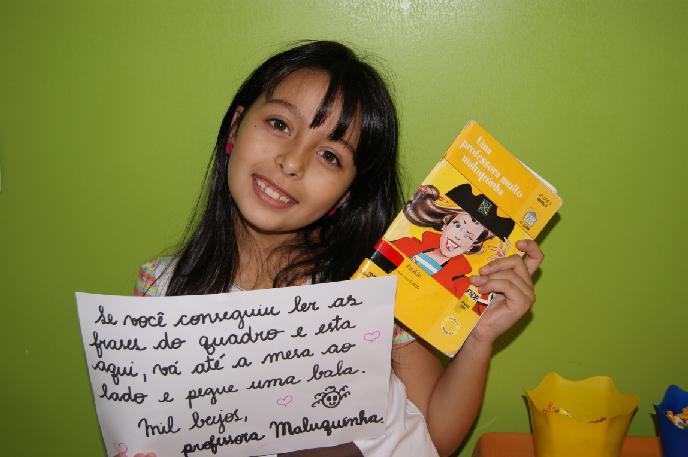 Uma
professora muito
maluquinha
Se você conseguiu ler as
frases do quadro e esta
aqui, vá até a mesa ao
lado e pegue uma bala.
Mil beijos,
professora Maluquinha.